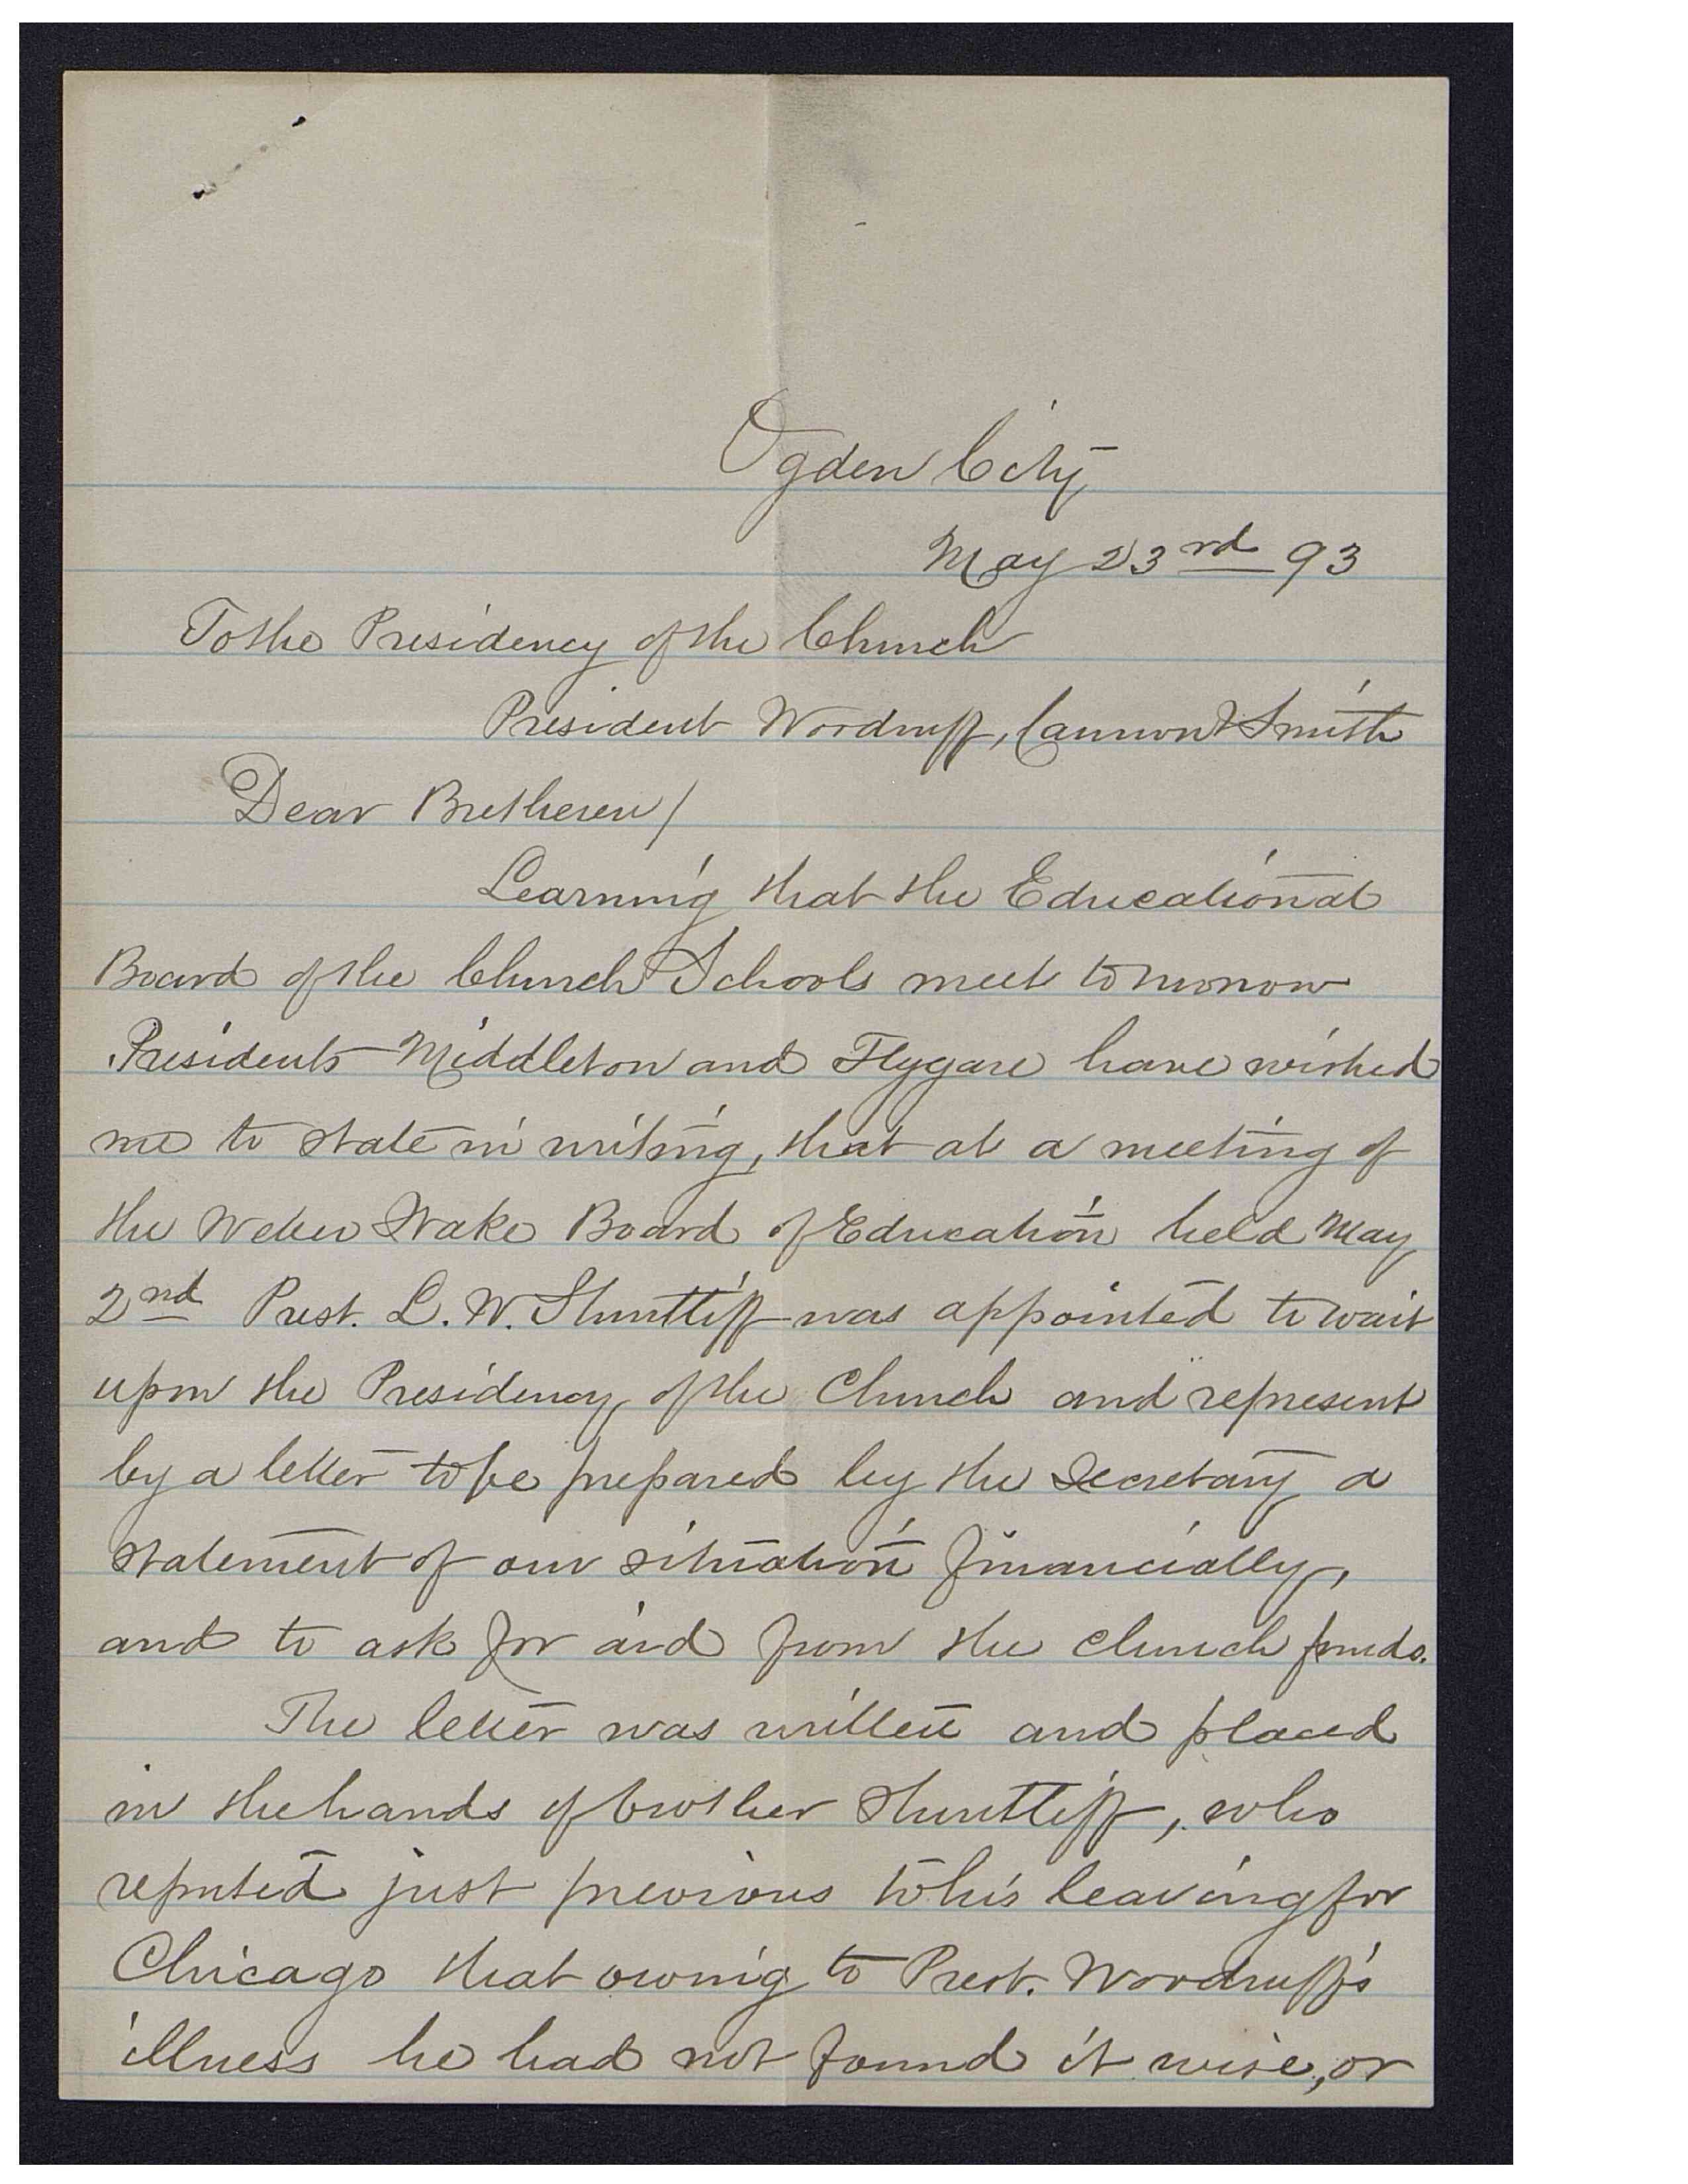 Ogden City
May 23rd 93
To the Presidency of the Church
President Woodruff, Cannon & Smith
Dear Bretheren/
Learning that the Educational
Board of the Church Schools meet tomorrow
Presidents Middleton and Flygare have wished
me to state in writing, that at a meeting of
the Weber Stake Board of Education held May
2nd Prest. L. W. Shurtliff was appointed to wait
upon the Presidency of the Church and represent
by a letter to be prepared by the Secretary a
statement of our situation financially,
and to ask for aid from the church funds.
The letter was written and placed
in the hands of brother Shurtliff, who
reported just previous to his leaving for
Chicago that owing to Prest. Woodruff's
illness he had not found it wise, or